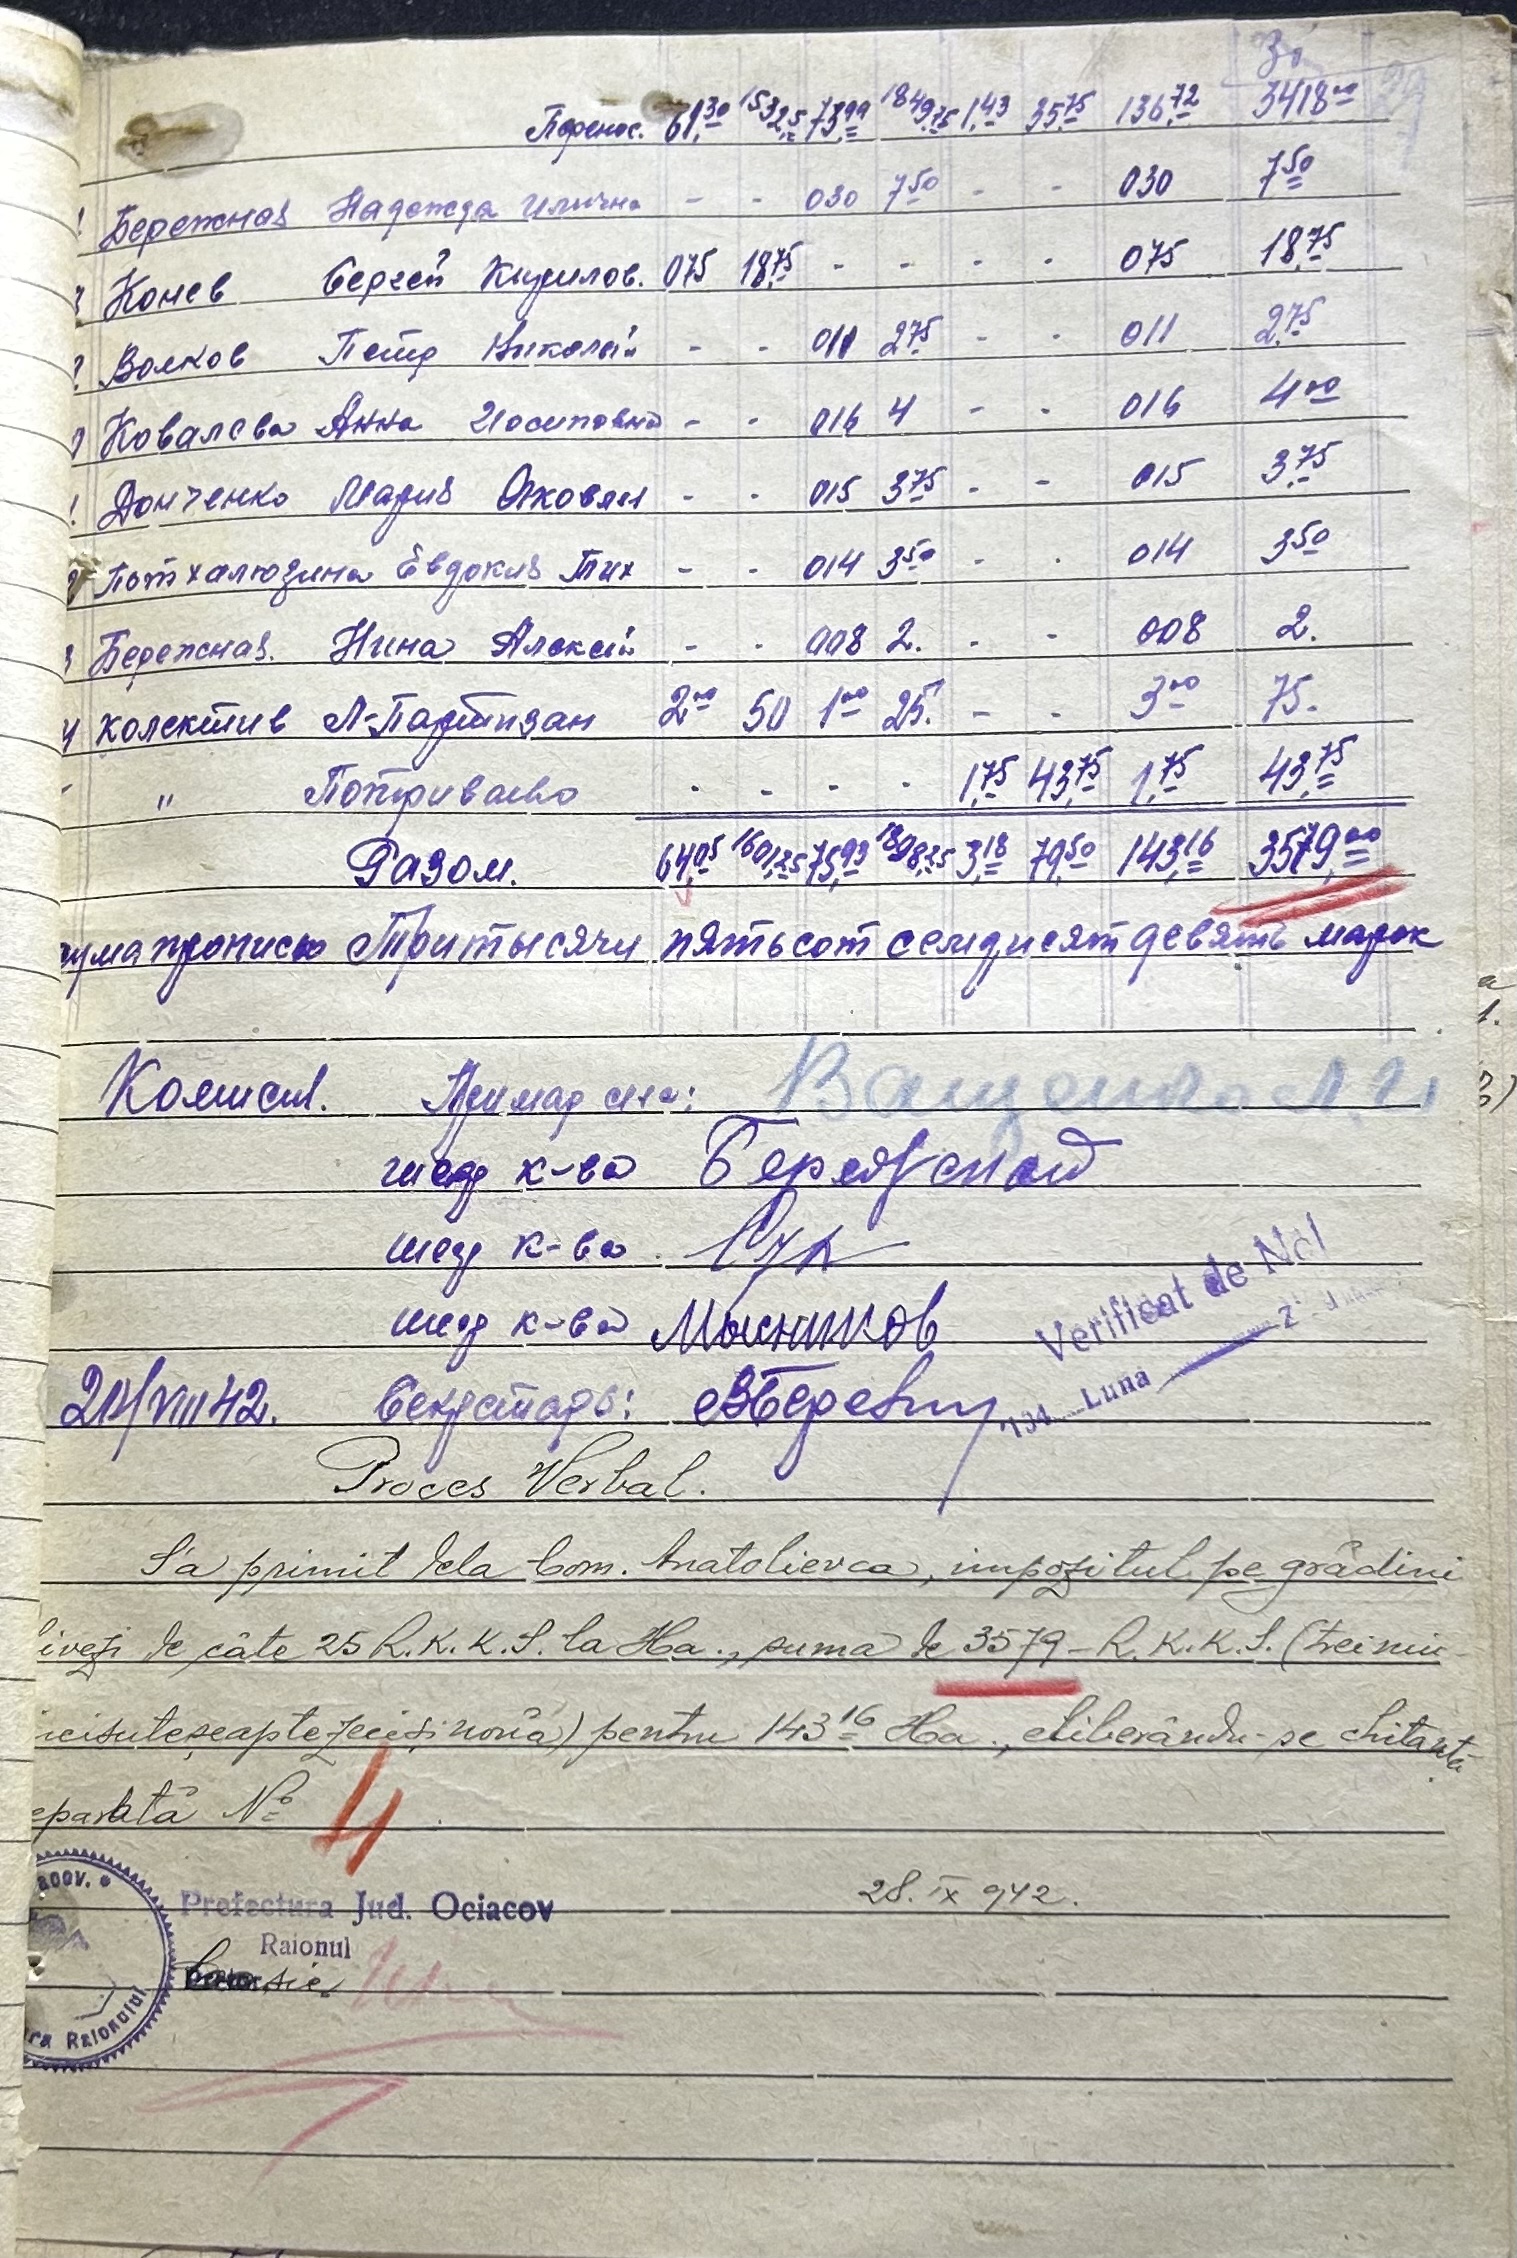 31
Перенос. 61,30 1532,5 73,99 1849,75 1,43 35,75 136,72 3418 00
Бережная Надежда Илична - - 030 7 50 - - 030 7 50
Конев Сергей Кирилов. 075 18,75 - - - - 075 18,75
Волков Петр Николай - - 011 2 75 - - 011 2,75
Ковалева Анна Иосиповна - - 016 4 - - 016 4 00
Донченко Мария Яковл - - 015 3 75 - - 015 3,75
Евдокия Тих - - 014 3 50 - - 014 3 50
Бережная. Нина Алексей - - 008 2. - - 008 2.
Колектив Л-Партизан 2 00 50 1 00 25. - - 3 00 75.
- " - - - - 1,75 43,75 1,75 43,75
Разом. 64,05 1601,25 75,93 1898,25 3,18 79,50 143,16 3579,00
сума прописью Три тысячи пятьсот семдисят девять марок
Комисия. Примар села: Ващенко
к-ва
к-ва
к-ва Мясников
21/VIII 42. Секретарь:
Verificat de Noi
194 Luna
Proces Verbal.
S'a primit dela Com. Anatolievca, impozitul pe grădini
livezi de câte 25 R.K.K.S. la Ha., suma de 3579 - R.K.K.S. (trei mii
cincisuteșeaptezecișinouă) pentru 143 16 Ha., eliberându-se chitanță
separată No 4.
28. IX 942.
Prefectura Jud. Ociacov
Raionul
Raionului